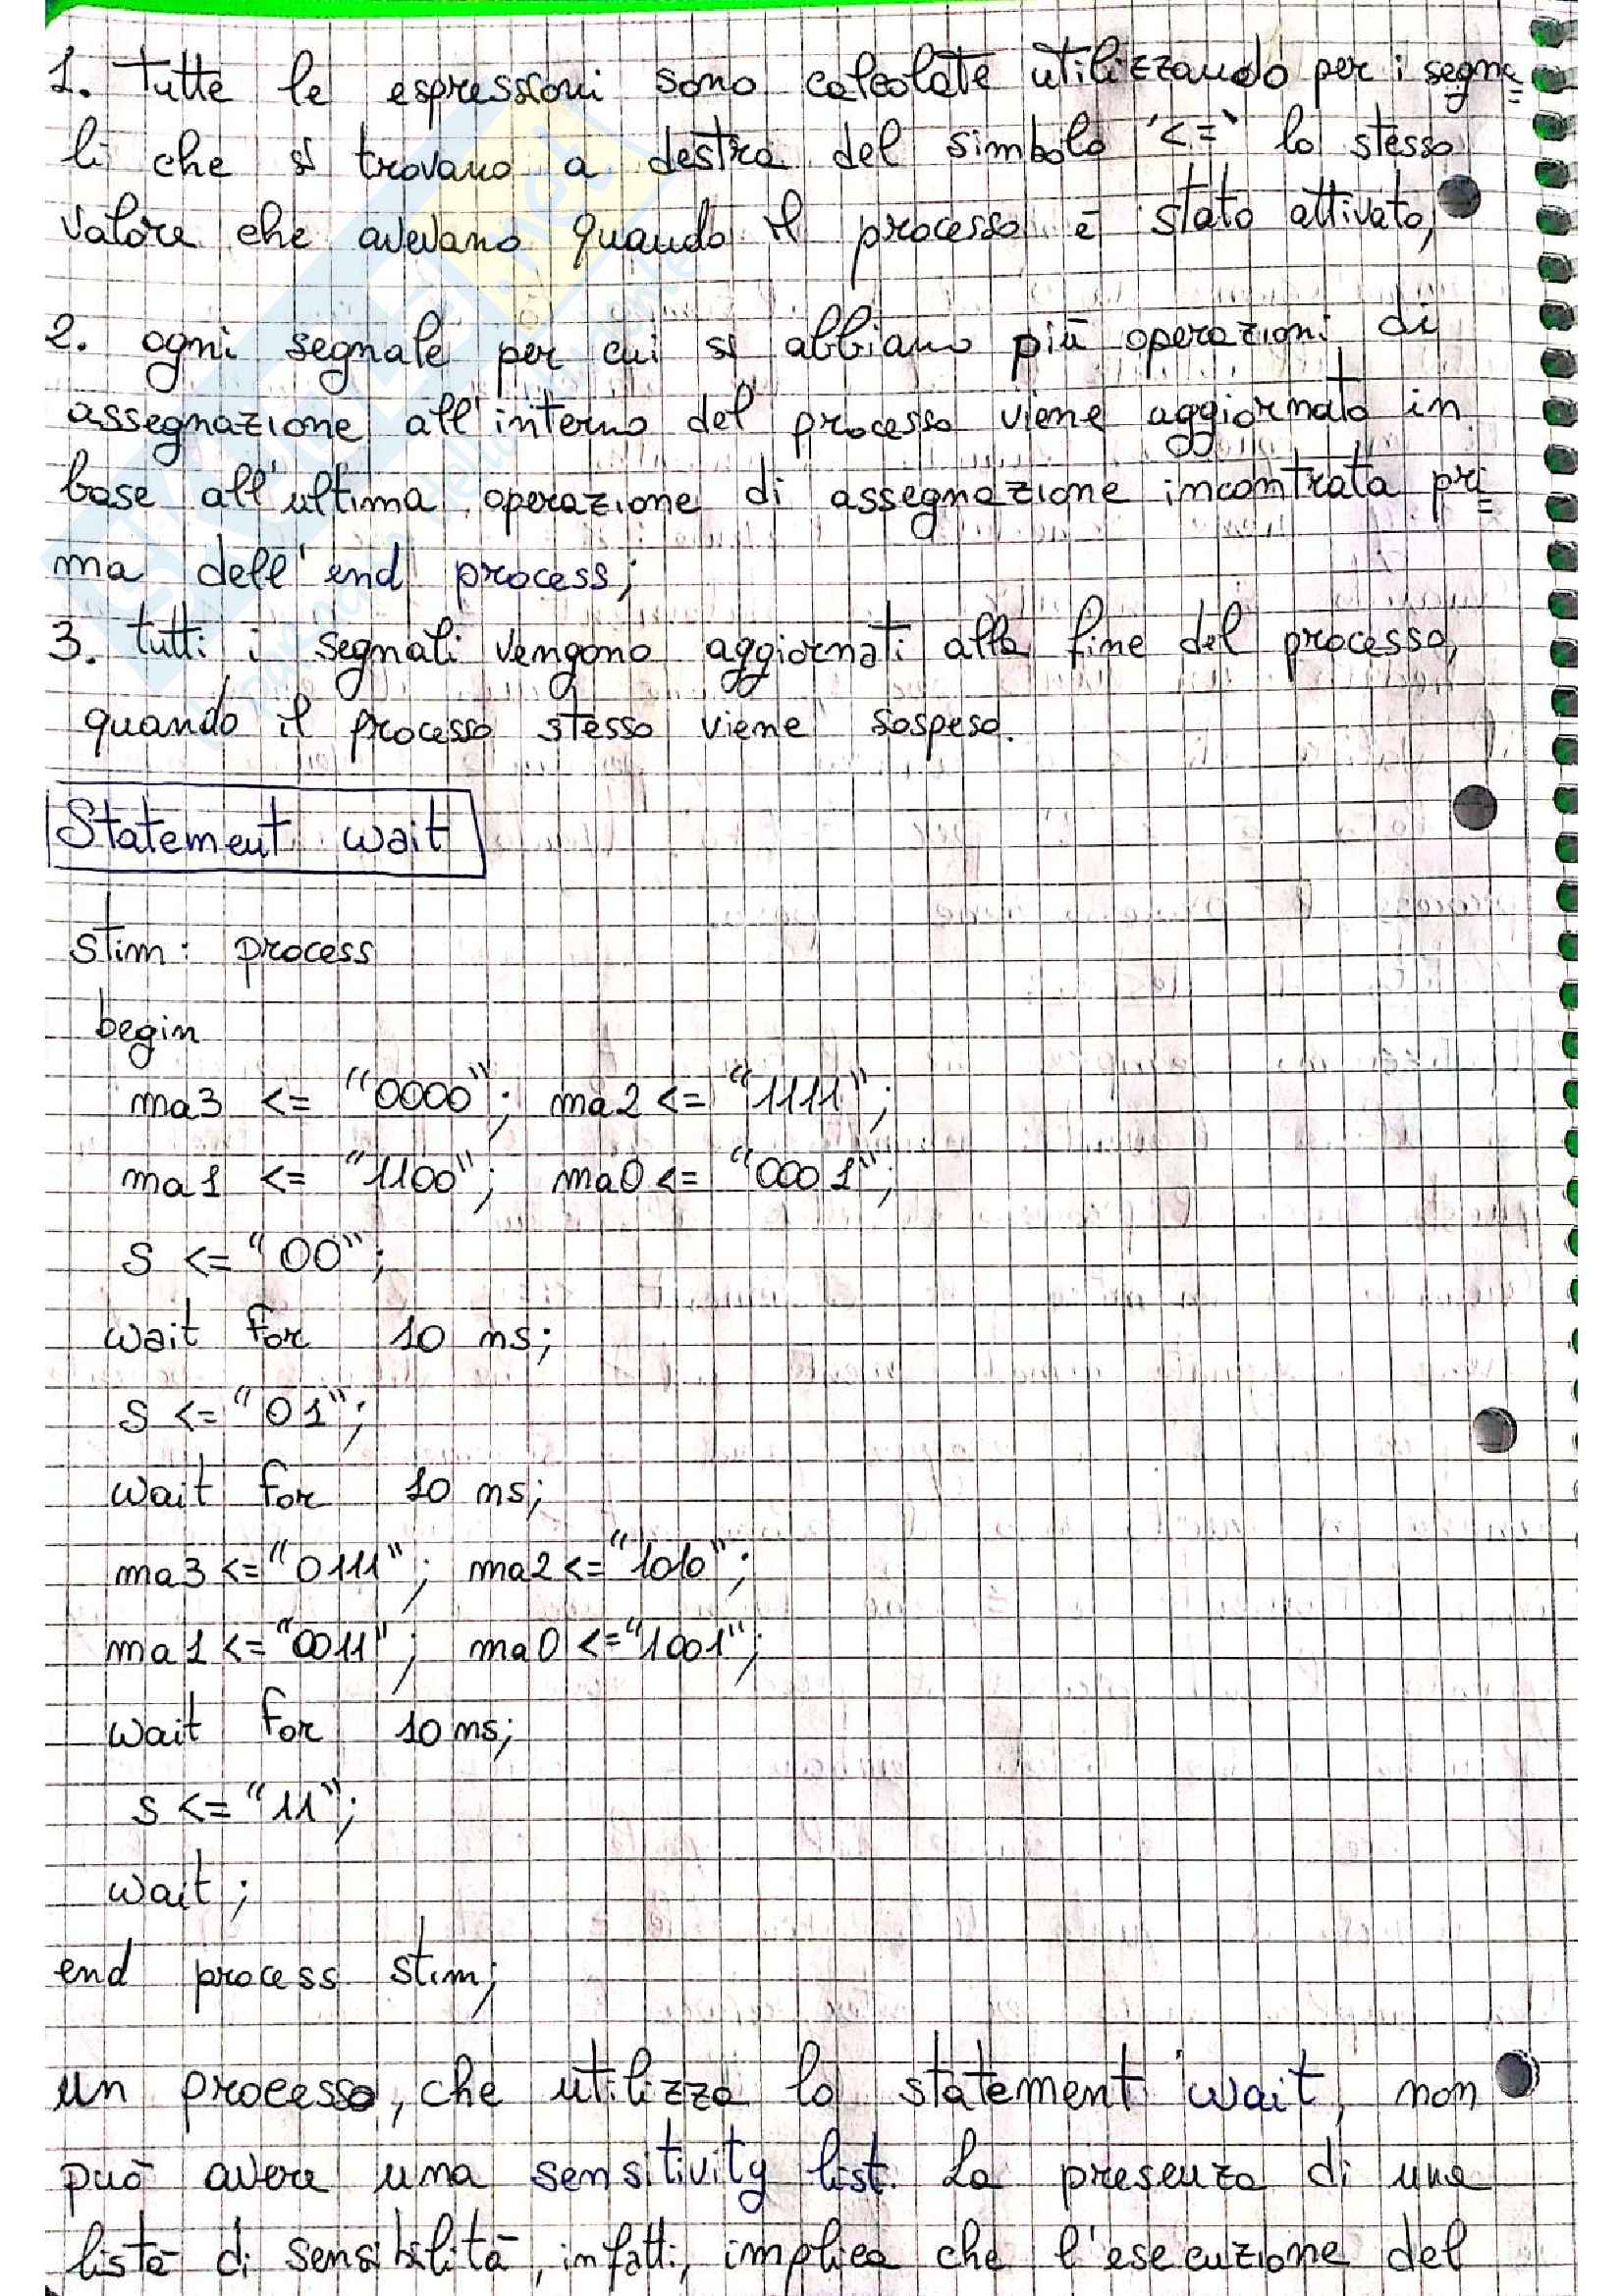 1. Tutte le espressioni sono calcolate utilizzando per i segna=
li che si trovano a destra del simbolo '<=' lo stesso
valore che avevano quando il processo è stato attivato;
2. ogni segnale per cui si abbiano più operazioni di
assegnazione all'interno del processo viene aggiornato in
base all'ultima operazione di assegnazione incontrata pri=
ma dell'end process;
3. tutti i segnali vengono aggiornati alla fine del processo,
quando il processo stesso viene sospeso.
Statement wait
stim: process
begin
ma3 <= "0000"; ma2 <= "1111";
ma1 <= "1100"; ma0 <= "0001";
s <= "00";
wait for 10 ns;
s <= "01";
wait for 10 ns;
ma3 <= "0111"; ma2 <= "1010";
ma1 <= "0011"; ma0 <= "1001";
wait for 10 ns;
s <= "11";
wait;
end process stim;
un processo, che utilizza lo statement wait, non
può avere una sensitivity list. La presenza di una
lista di sensibilità, infatti, implica che l'esecuzione del